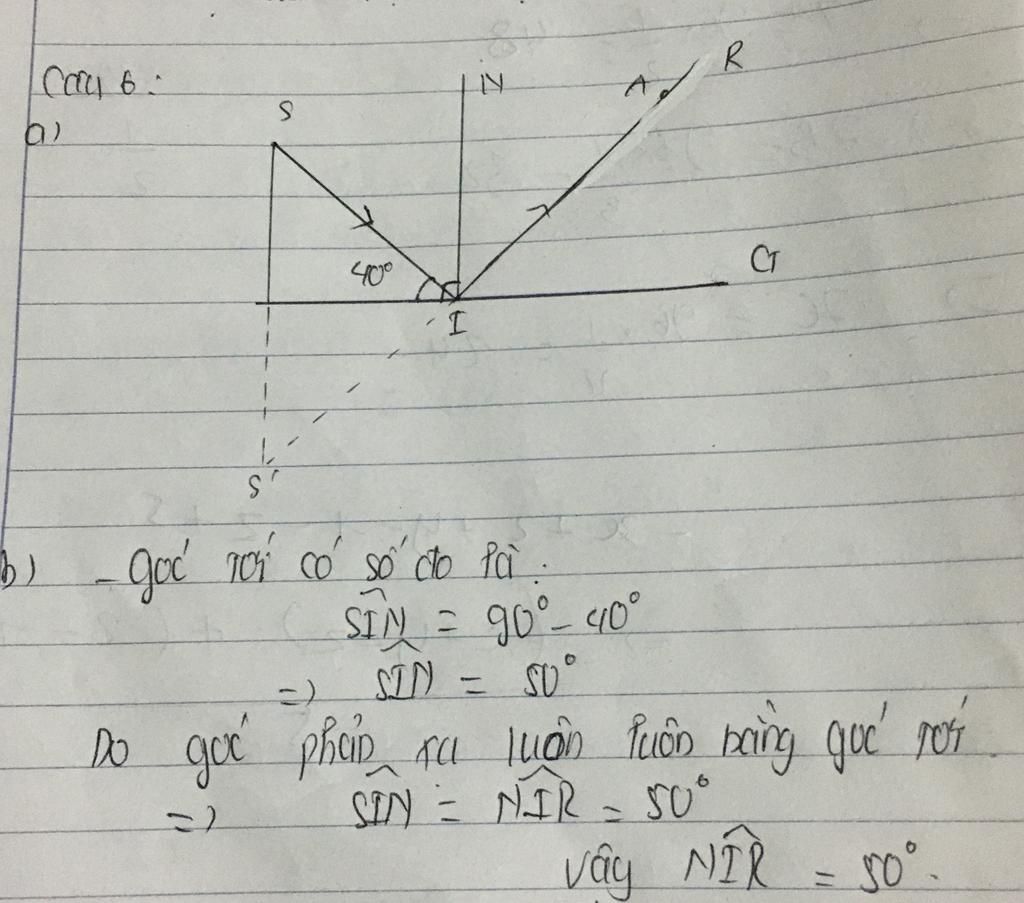 Câu 6:
a)
S
N
A
R
40°
I
G
S'
b) - góc tới có số đo là:
SIN = 90° - 40°
=> SIN = 50°
Do góc phản xạ luôn luôn bằng góc tới.
=> SIN = NIR = 50°
Vậy NIR = 50°.